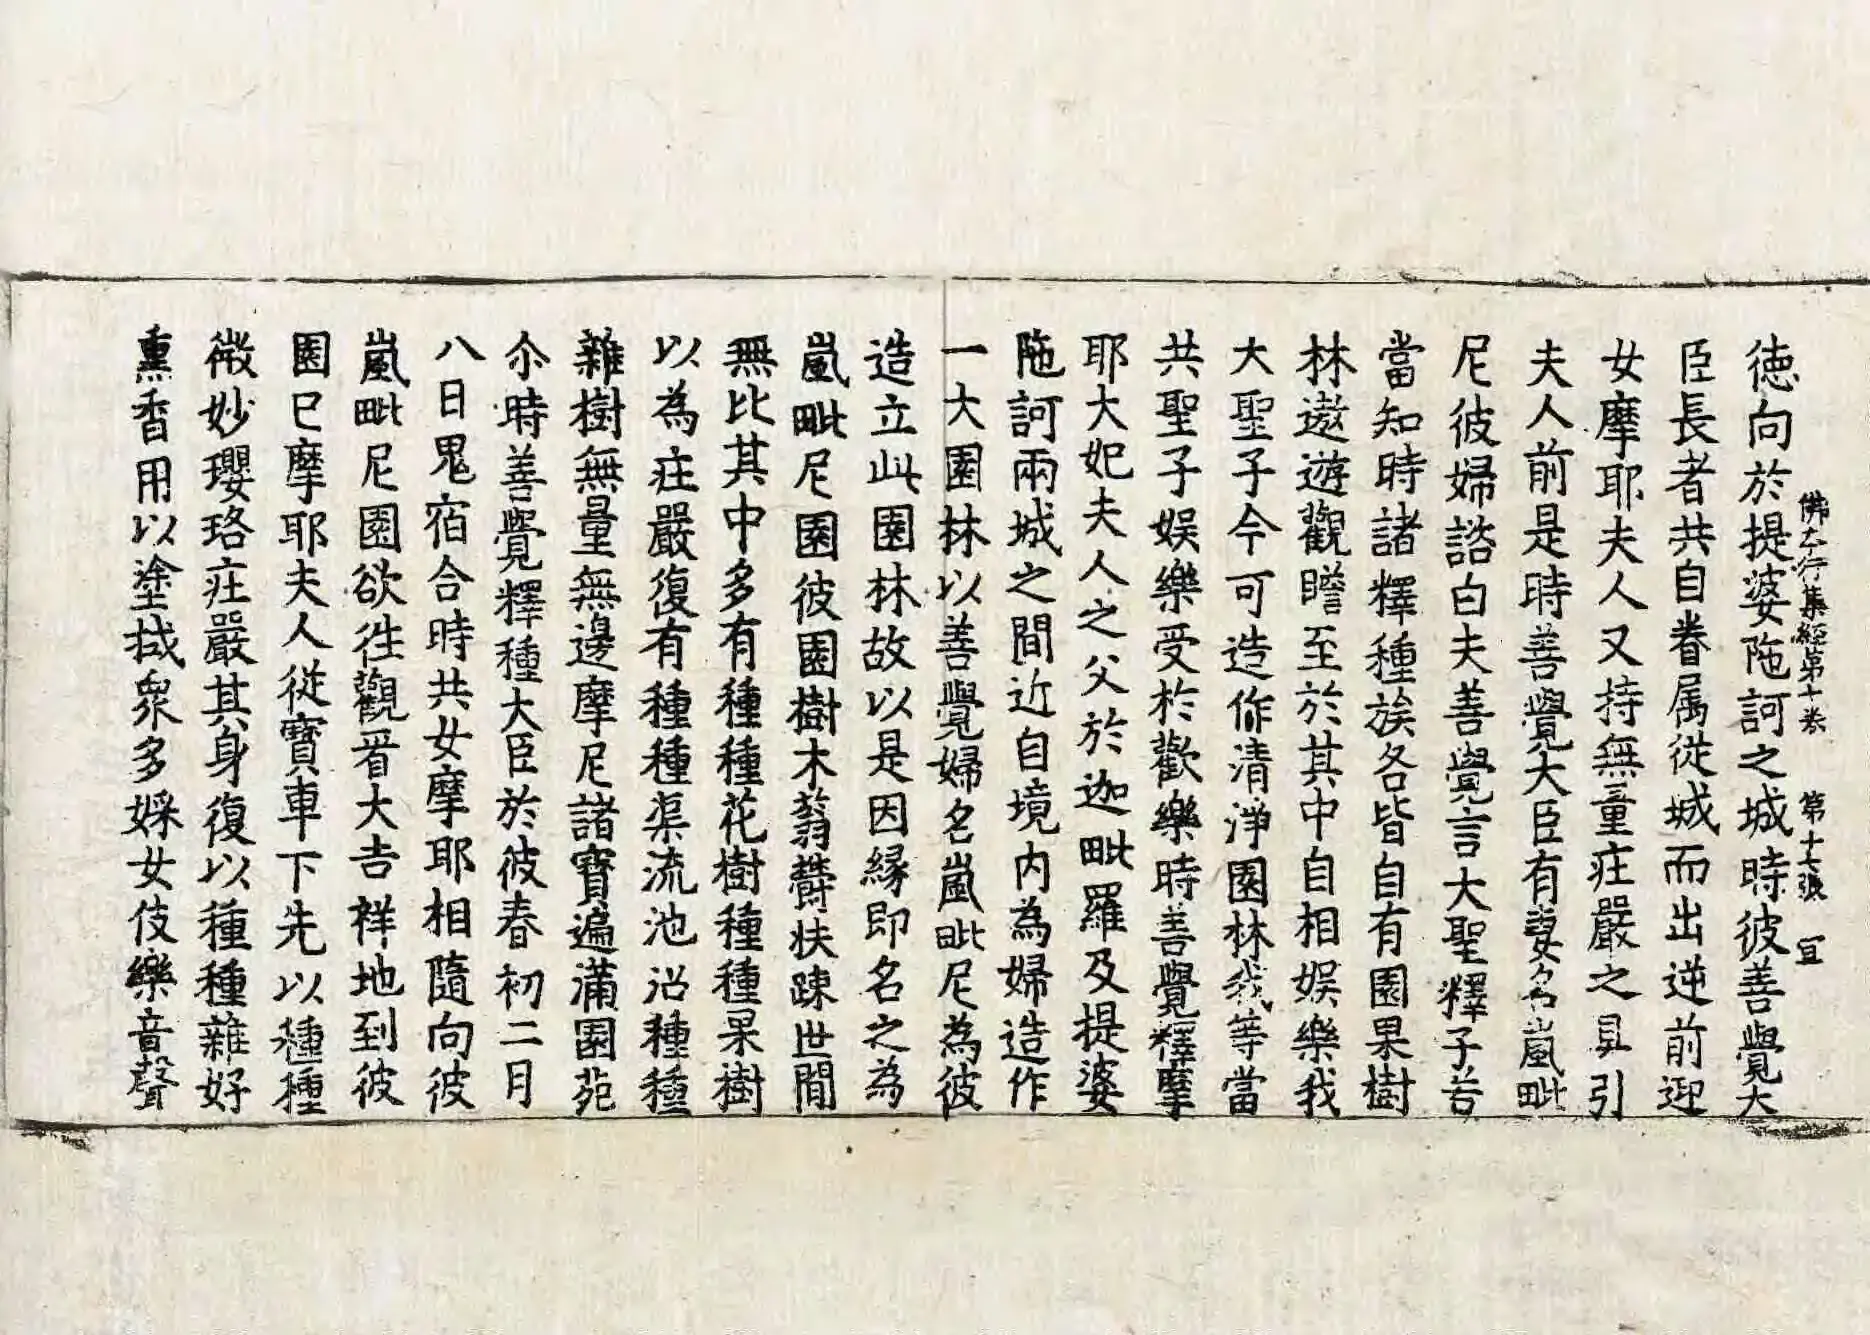 佛本行集經第七卷 第十七張 宜
德向於提婆陁訶之城時彼善覺大
臣長者共自眷属從城而出逆前迎
女摩耶夫人又持無量庄嚴之具引
夫人前是時善覺大臣有妻名嵐毗
尼彼婦諮白夫善覺言大聖釋子若
當知時諸釋種族各皆自有園果樹
林遨遊觀瞻至於其中自相娛樂我
大聖子今可造作清淨園林我等當
共聖子娛樂受於歡樂時善覺釋摩
耶大妃夫人之父於迦毗羅及提婆
陁訶兩城之間近自境内為婦造作
一大園林以善覺婦名嵐毗尼為彼
造立此園林故以是因縁即名之為
嵐毗尼園彼園樹木蓊欝扶踈世間
無比其中多有種種花樹種種果樹
以為庄嚴復有種種渠流池沼種種
雜樹無量無邊摩尼諸寶遍滿園苑
尒時善覺釋種大臣於彼春初二月
八日鬼宿合時共女摩耶相隨向彼
嵐毗尼園欲往觀看大吉祥地到彼
園已摩耶夫人從寶車下先以種種
微妙瓔珞庄嚴其身復以種種雜好
熏香用以塗拭衆多婇女伎樂音聲